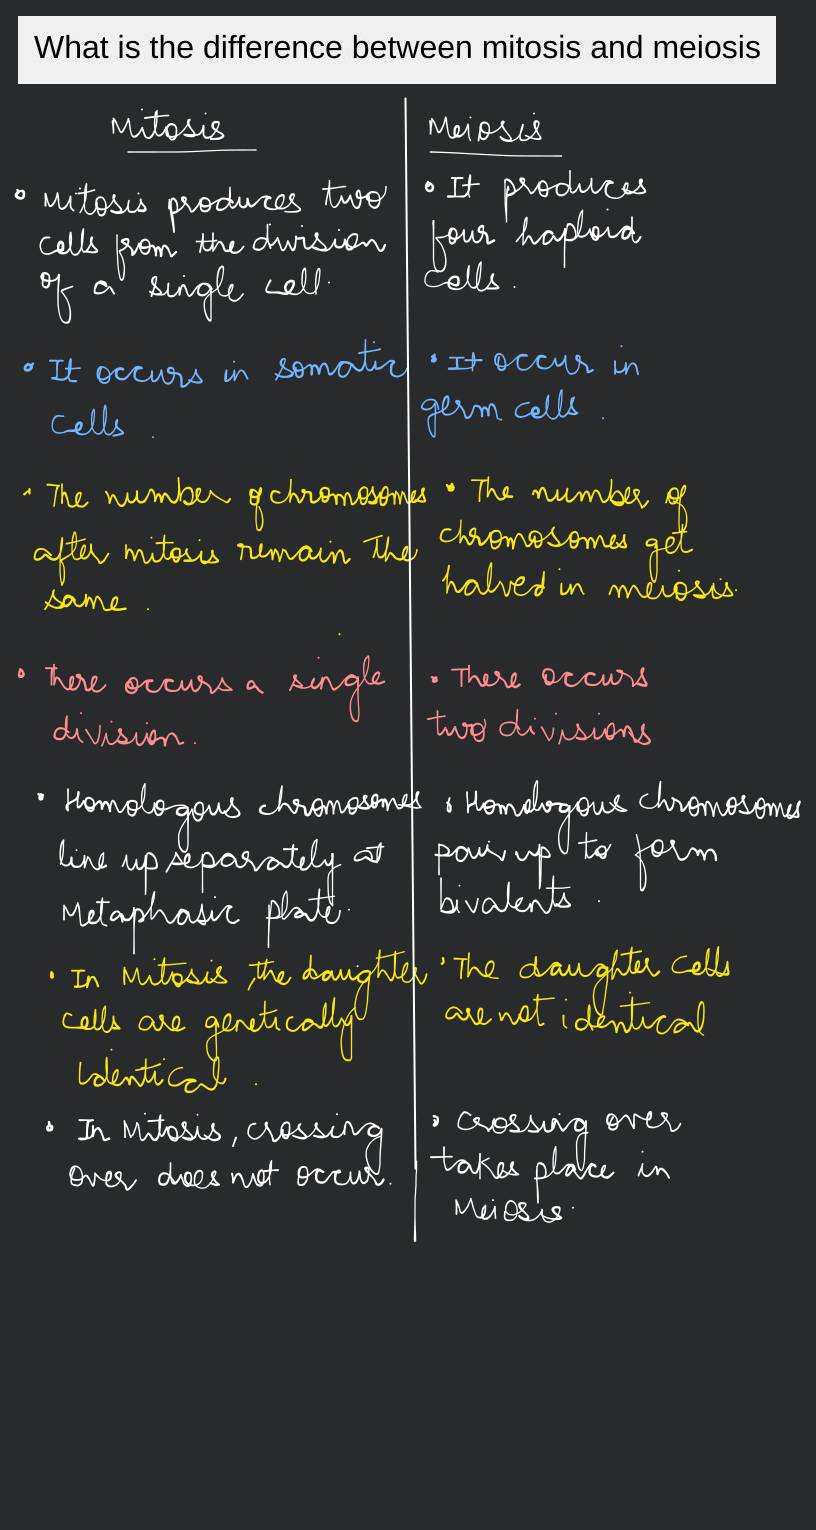 What is the difference between mitosis and meiosis
Mitosis
• Mitosis produces two
cells from the division
of a single cell.
• It occurs in somatic
cells .
• The number of chromosomes
after mitosis remain the
same .
• There occurs a single
division .
• Homologous chromosomes
line up separately at
Metaphasic plate.
• In Mitosis ,the daughter
cells are genetically
identical .
• In Mitosis , crossing
over does not occur.
Meiosis
• It produces
four haploid
cells .
• It occur in
germ cells .
• The number of
chromosomes get
halved in meiosis.
• There occurs
two divisions
• Homologous chromosomes
pair up to form
bivalents .
• The daughter cells
are not identical
• Crossing over
takes place in
Meiosis.